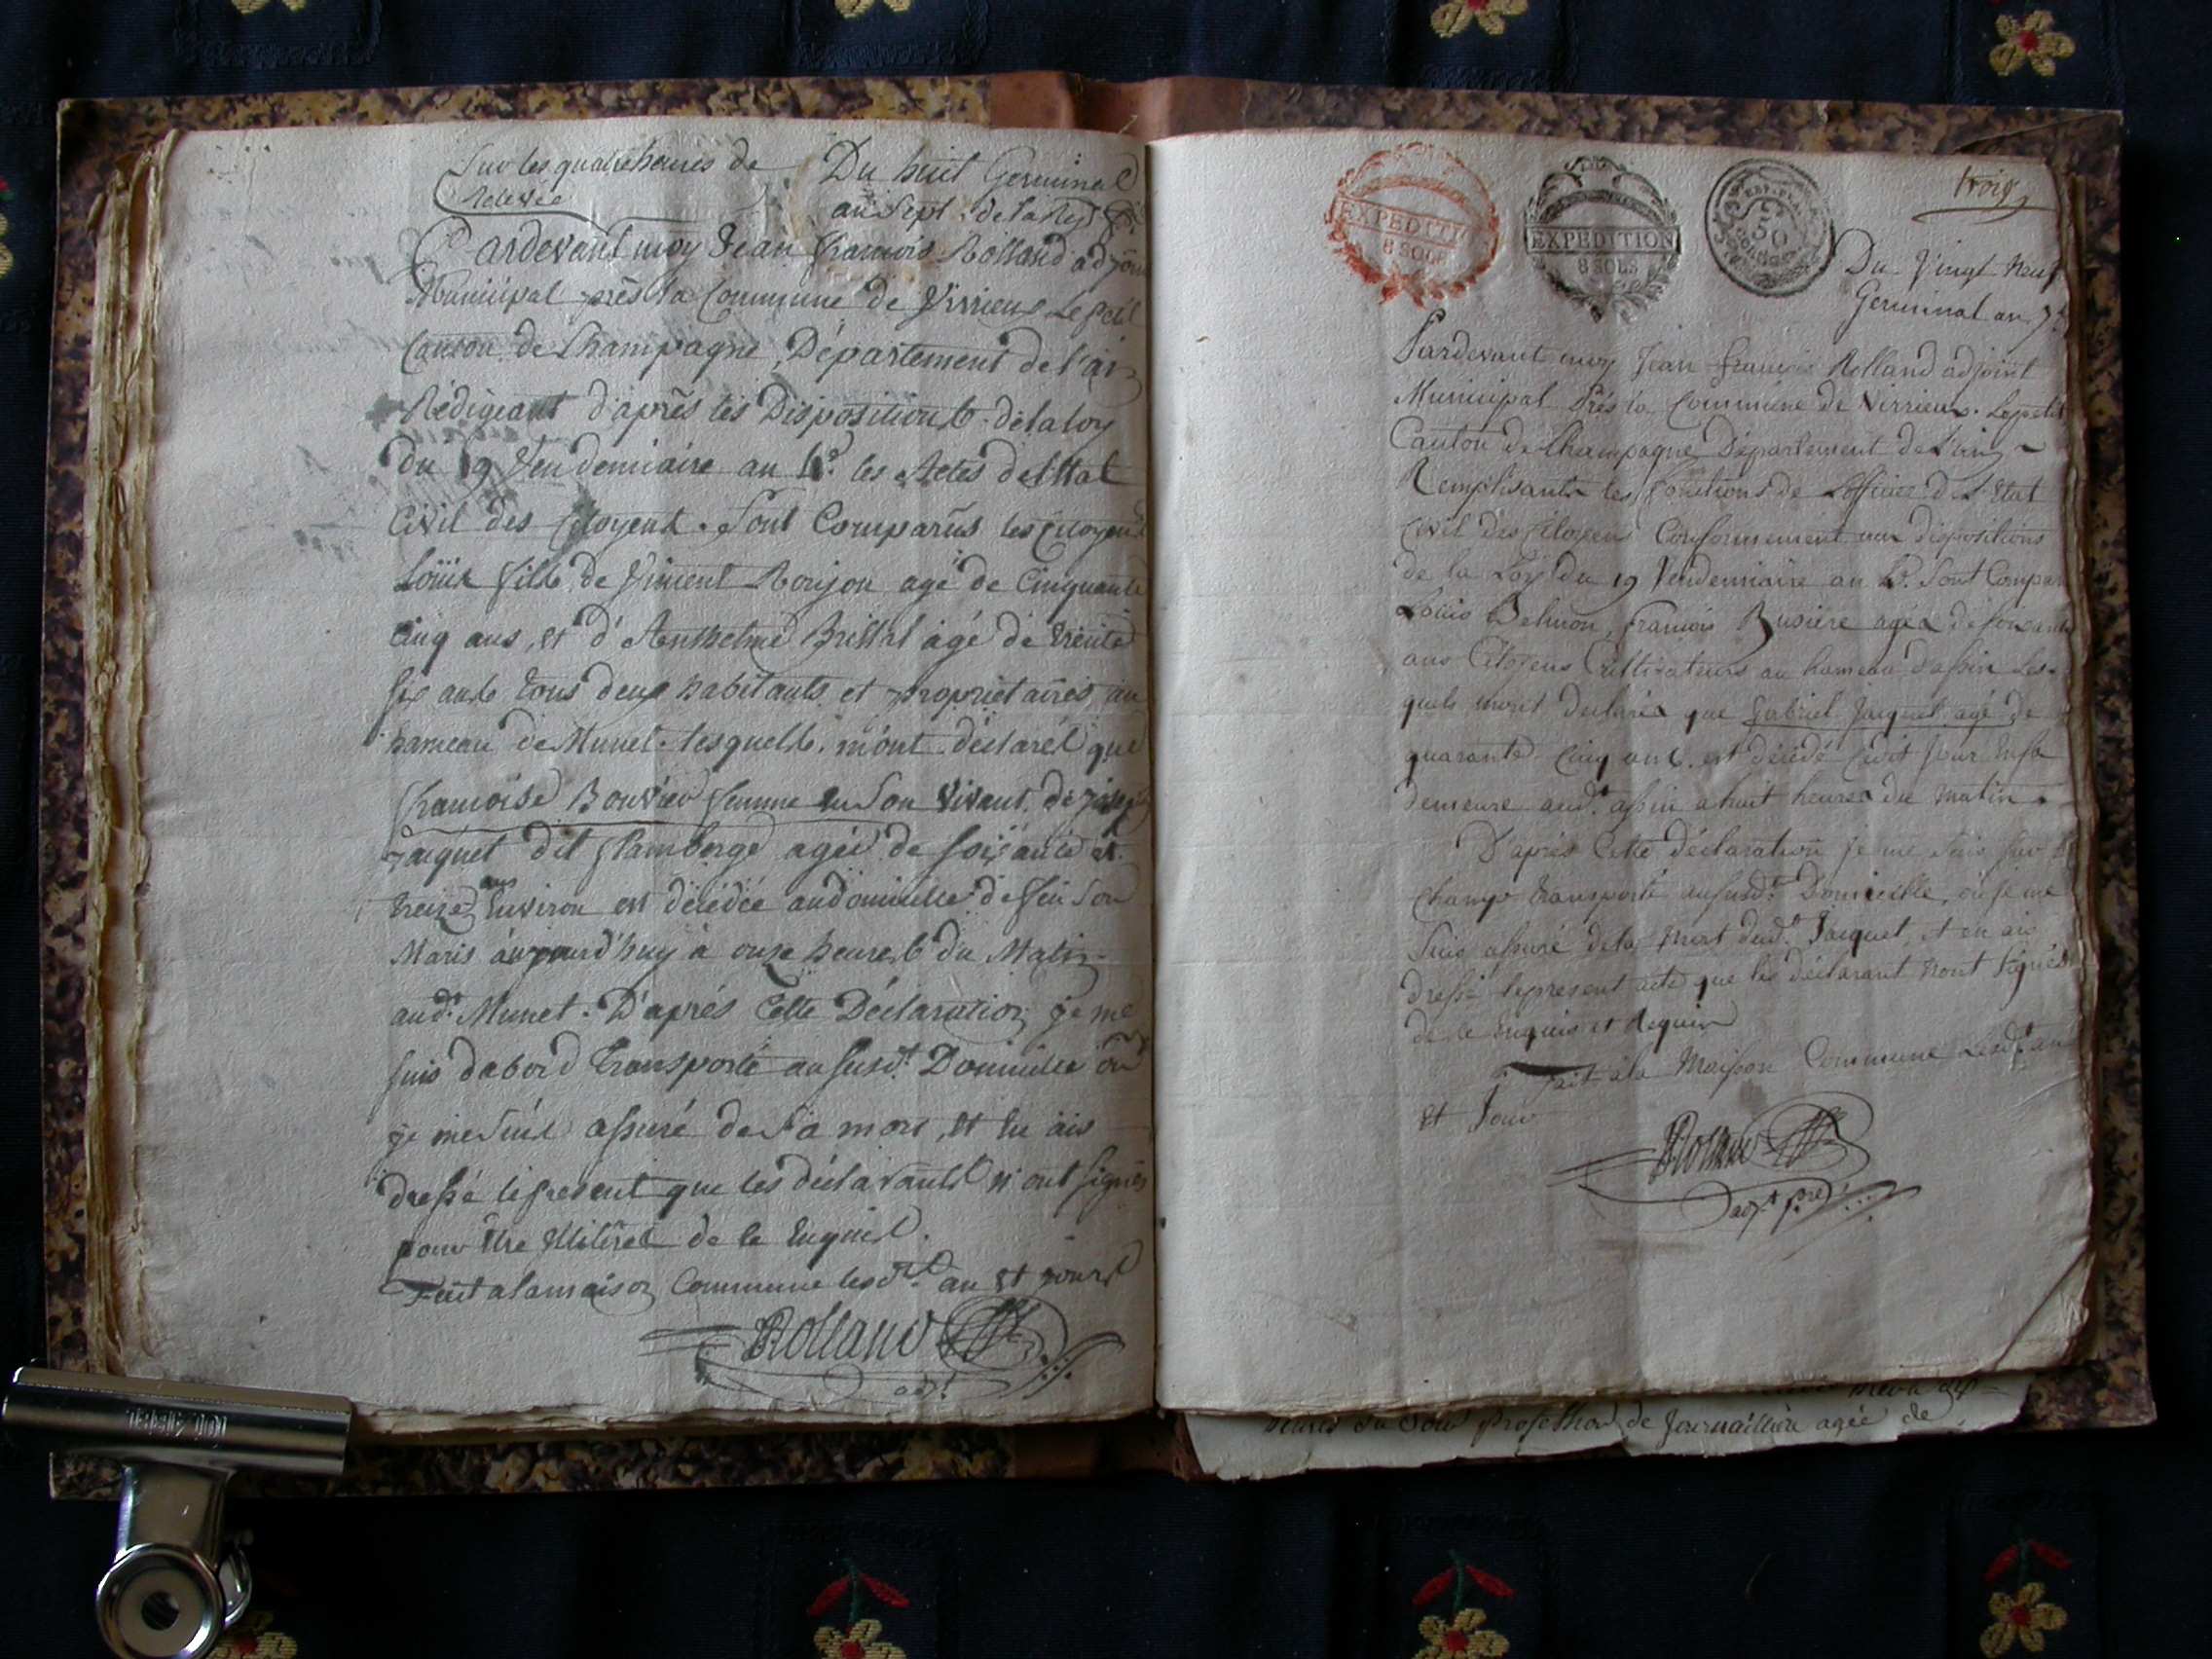 Sur les quatre heures de
Relevée
Du huit Germinal
an Sept. de la Rep.
Pardevant moy Jean François Rolland adjoint
Municipal près la Commune de Virrieux Le petit
Canton de Champagne, Département de l'ain
Rédigeant d'après les Dispositions de la loy
du 19 Vendémiaire an 4.e les Actes de l'Etat
Civil des Citoyens. Sont Comparûs les Citoyens
Louis fills de Vincent Roujon agé de Cinquante
Cinq ans, et d'Anthelme Brissal agé de trente
six ans tous deux habitants et propriétaires au
hameau de Munet. lesquells. m'ont déclarés que
françoise Bouvier femme en Son Vivant de Joseph
Jacquet dit flamberge agée de soixante et
treize ans Environ est décédée au domicille de feu Son
Maris aujourd'huy à onze heures du Matin
aud.t Munet. D'aprés Cette Déclaration je me
suis dabord transporté au susd.t Domicilie où
je me suis assuré de sa mort, et en ais
dressé le present que les déclarants n'ont signés
pour être Illitérés de ce Enquis.
Fait a la maison Commune lesd.ts an et jours
Rolland
adj.t
EXPEDITION
8 SOLS
EXPEDITION
8 SOLS
REP. FRA.
50
trois
Du Vingt Neuf
Germinal an 7.e
Pardevant moy Jean françois Rolland adjoint
Municipal Près la Commune de Virrieux. Le petit
Canton de Champagne Département de L'ain
Remplisants les fonctions de L'officier de L'Etat
Civil des Citoyens Conformement aux dispositions
de la Loy du 19 Vendemiaire an 4.e Sont Comparu
Louis Belmon, françois Busiere agés de soixante
ans Citoyens Cultivateurs au hameau d'assin Les-
quels mont declarés que Gabriel Jacquet agé de
quarante Cinq ans. est décédé Cedit Jour En sa
demeure aud.t assin a huit heures du matin.
D'aprés Cette déclaration Je me suis sur le
champs transporté au susd.t Domicille, où je me
suis assuré de la mort dud.t Jacquet, et en ais
dressé le present acte que les déclarant n'ont signés
de ce Enquis et Requis
Fait a la Maison Commune Lesd.t an
Et Jour
Rolland
adj.t
heures du Soir profession de Journalliere agée de